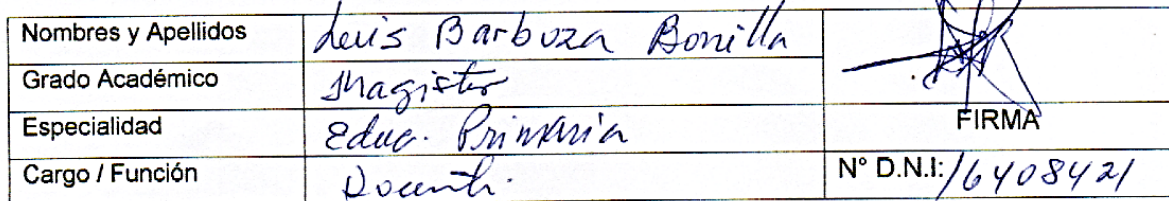 Nombres y Apellidos Luis Barboza Bonilla
Grado Académico Magister
Especialidad Educ. Primaria
FIRMA
Cargo / Función Docente.
N° D.N.I: 16408421